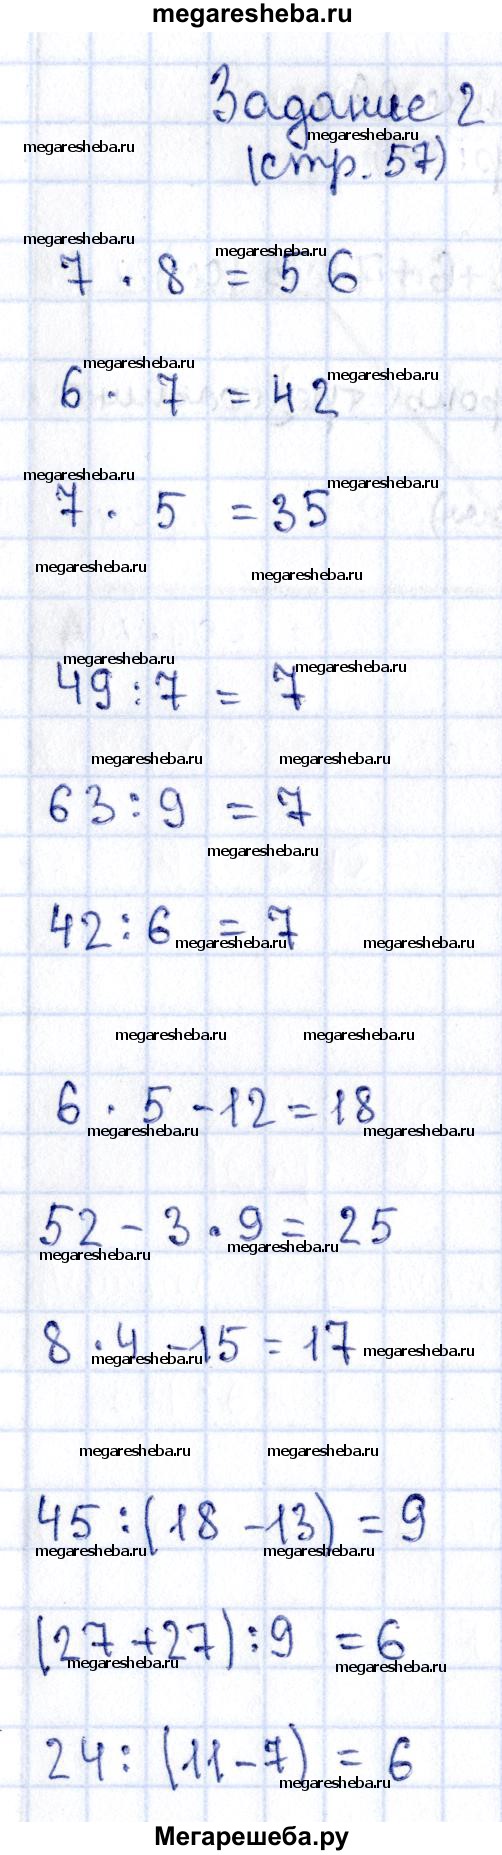 megaresheba.ru
Задание 2
megaresheba.ru
megaresheba.ru
(стр. 57)
megaresheba.ru
megaresheba.ru
7 · 8 = 56
megaresheba.ru
megaresheba.ru
6 · 7 = 42
megaresheba.ru
megaresheba.ru
7 · 5 = 35
megaresheba.ru
megaresheba.ru
megaresheba.ru
megaresheba.ru
49 : 7 = 7
megaresheba.ru
megaresheba.ru
63 : 9 = 7
megaresheba.ru
42 : 6 = 7
megaresheba.ru
megaresheba.ru
megaresheba.ru
megaresheba.ru
6 · 5 - 12 = 18
megaresheba.ru
megaresheba.ru
52 - 3 · 9 = 25
megaresheba.ru
megaresheba.ru
8 · 4 - 15 = 17
megaresheba.ru
megaresheba.ru
megaresheba.ru
megaresheba.ru
45 : (18 - 13) = 9
megaresheba.ru
megaresheba.ru
(27 + 27) : 9 = 6
megaresheba.ru
megaresheba.ru
24 : (11 - 7) = 6
megaresheba.ru
Мегарешеба.ру